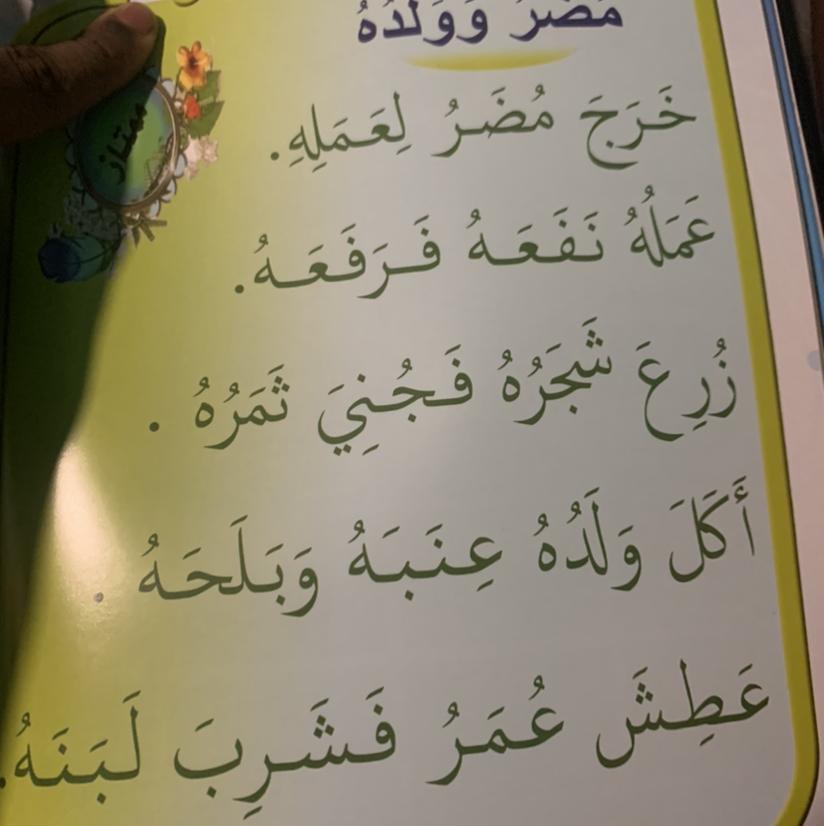 مُضَرُ وَوَلَدُهُ
خَرَجَ مُضَرُ لِعَمَلِهِ.
عَمَلُهُ نَفَعَهُ فَرَفَعَهُ.
زُرِعَ شَجَرُهُ فَجُنِيَ ثَمَرُهُ .
أَكَلَ وَلَدُهُ عِنَبَهُ وَبَلَحَهُ .
عَطِشَ عُمَرُ فَشَرِبَ لَبَنَهُ.
ممتاز